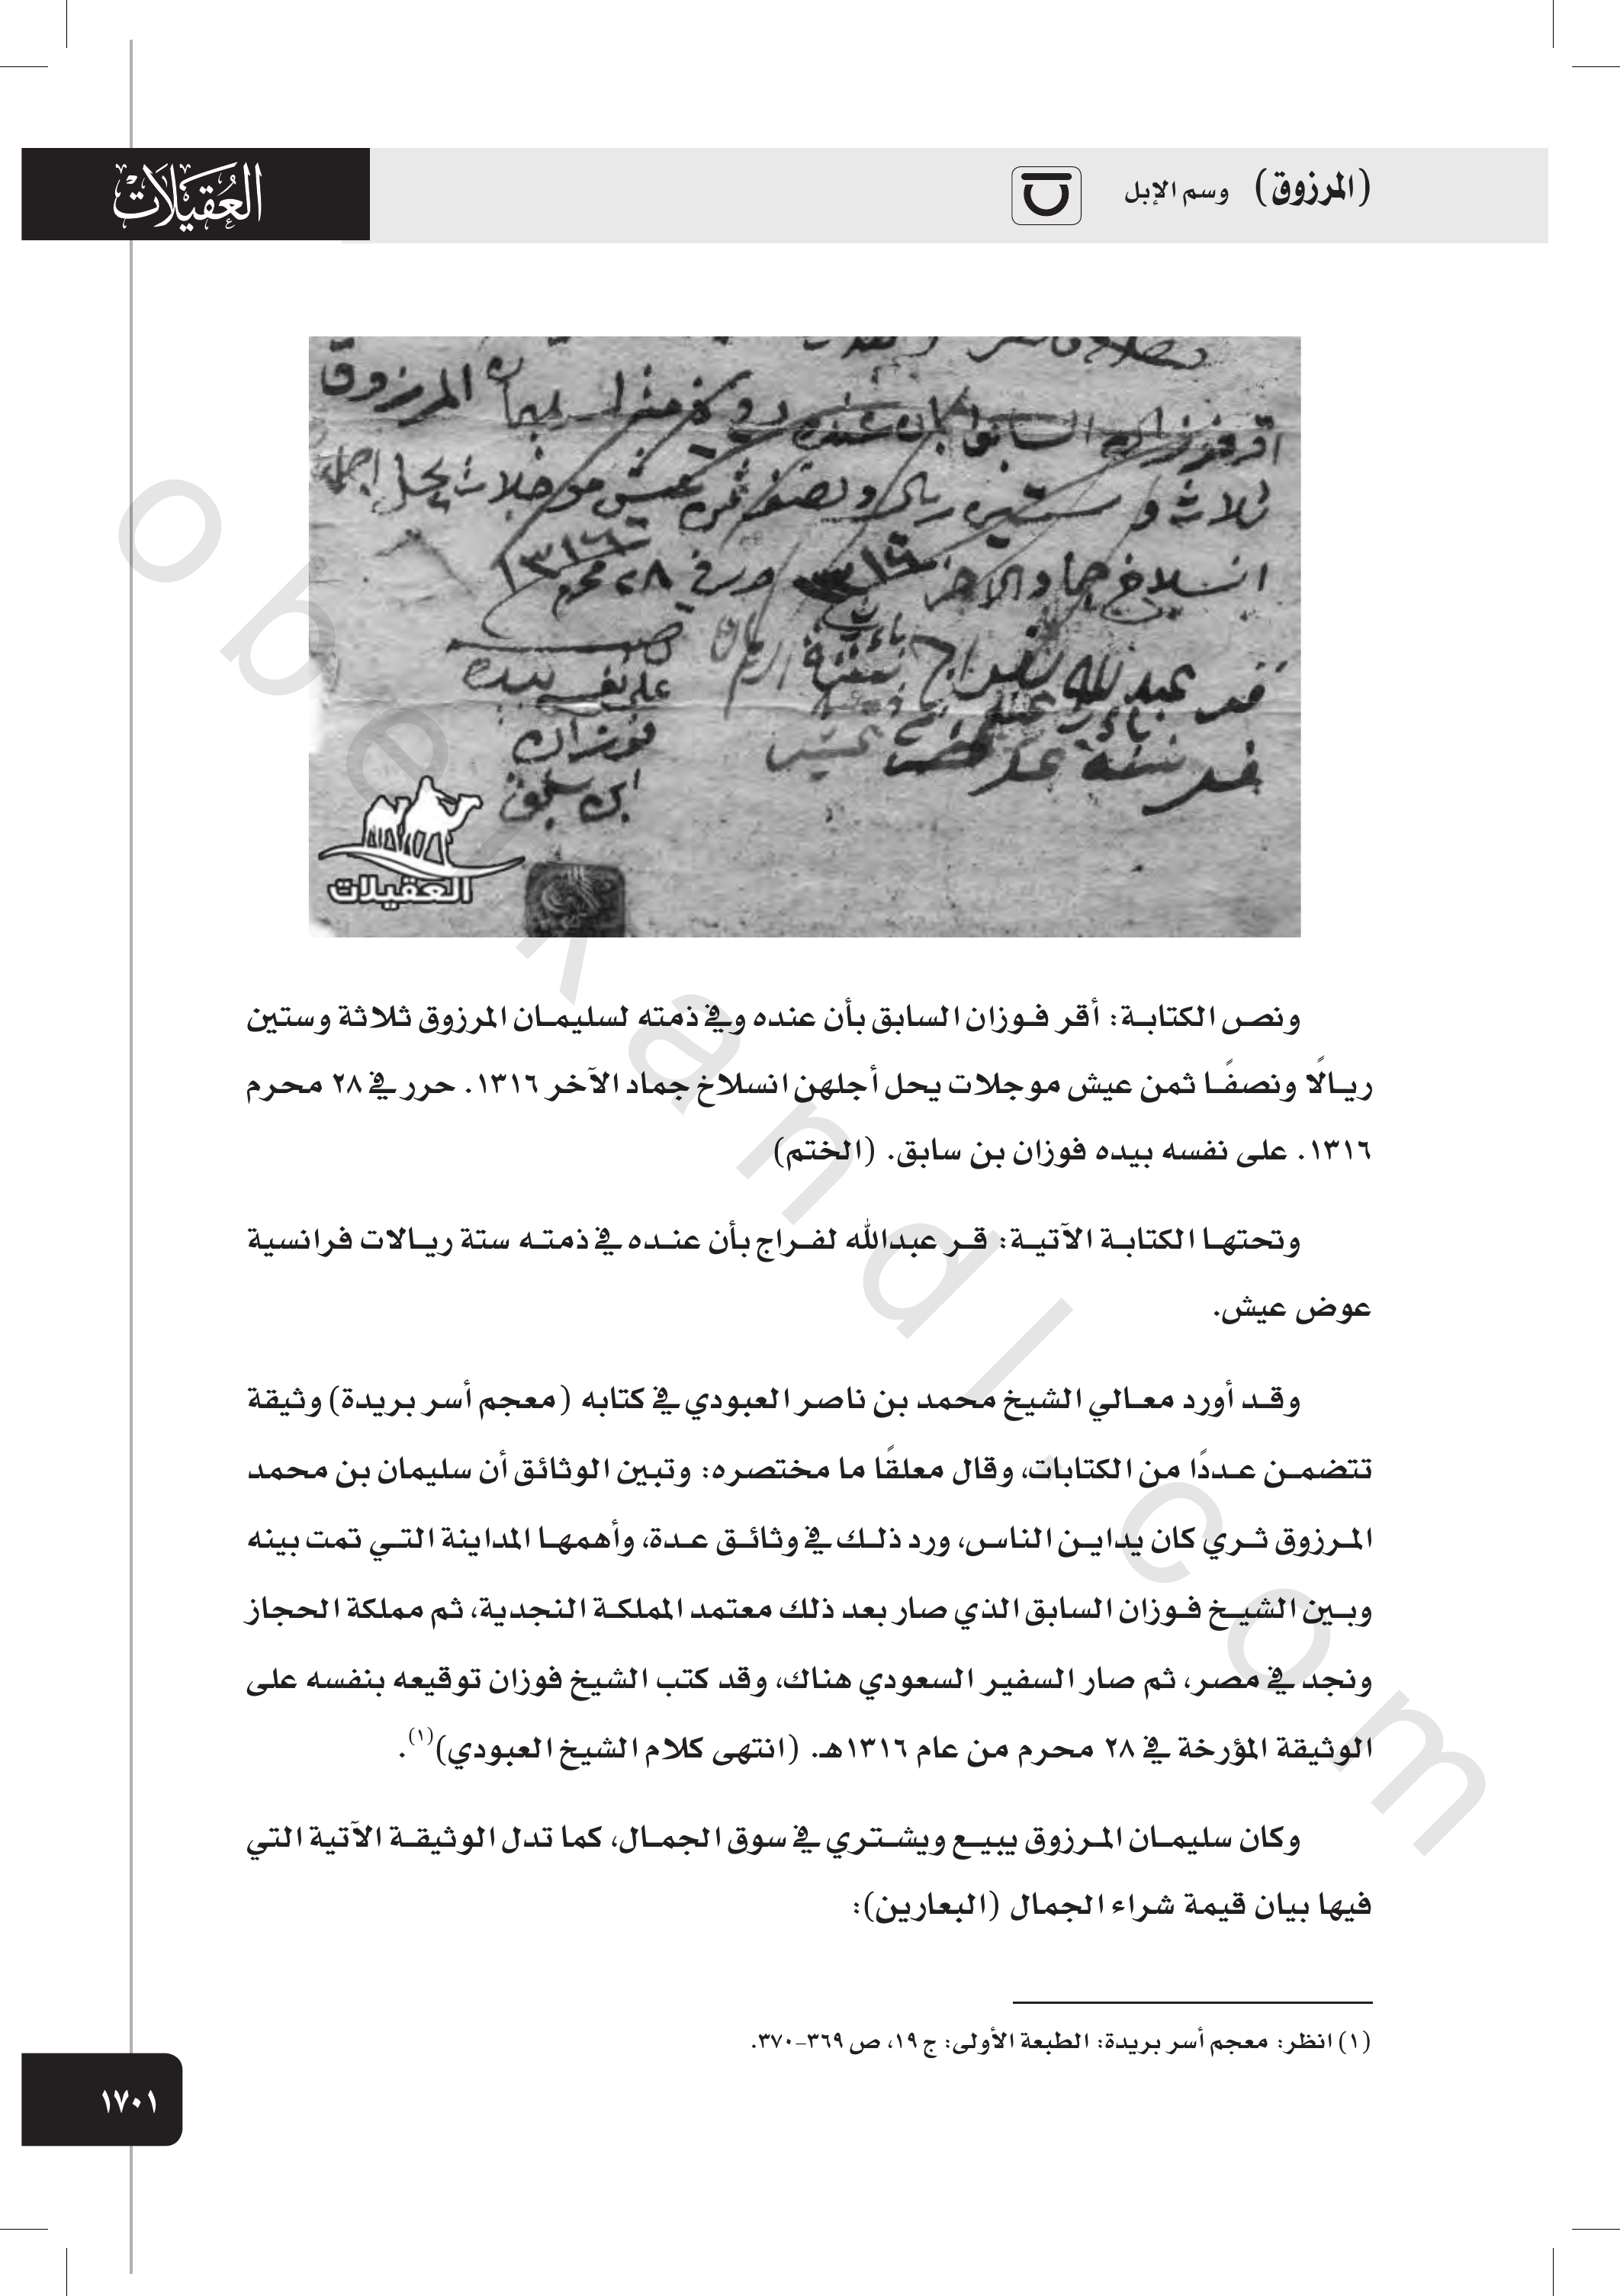 (المرزوق) وسم الإبل
العقيلات
اقر فوزان السابق بان عنده وفي ذمته لسليمان المرزوق
ثلاث وستين ريال ونصف ثمن عيش موجلات يحل اجلهن
انسلاخ جماد الاخر ١٣١٦ حرر في ٢٨ محرم ١٣١٦
على نفسه بيده
فوزان
ابن سابق
العقيلات
ونص الكتابة: أقر فوزان السابق بأن عنده وفي ذمته لسليمان المرزوق ثلاثة وستين
ريالًا ونصفًا ثمن عيش موجلات يحل أجلهن انسلاخ جماد الآخر ١٣١٦. حرر في ٢٨ محرم
١٣١٦. على نفسه بيده فوزان بن سابق. (الختم)
وتحتها الكتابة الآتية: قر عبدالله لفراج بأن عنده في ذمته ستة ريالات فرانسية
عوض عيش.
وقد أورد معالي الشيخ محمد بن ناصر العبودي في كتابه (معجم أسر بريدة) وثيقة
تتضمن عددًا من الكتابات، وقال معلقًا ما مختصره: وتبين الوثائق أن سليمان بن محمد
المرزوق ثري كان يداين الناس، ورد ذلك في وثائق عدة، وأهمها المداينة التي تمت بينه
وبين الشيخ فوزان السابق الذي صار بعد ذلك معتمد المملكة النجدية، ثم مملكة الحجاز
ونجد في مصر، ثم صار السفير السعودي هناك، وقد كتب الشيخ فوزان توقيعه بنفسه على
الوثيقة المؤرخة في ٢٨ محرم من عام ١٣١٦هـ. (انتهى كلام الشيخ العبودي)(١).
وكان سليمان المرزوق يبيع ويشتري في سوق الجمال، كما تدل الوثيقة الآتية التي
فيها بيان قيمة شراء الجمال (البعارين):
(١) انظر: معجم أسر بريدة: الطبعة الأولى: ج ١٩، ص ٣٦٩-٣٧٠.
١٧٠١
obeikandl.com